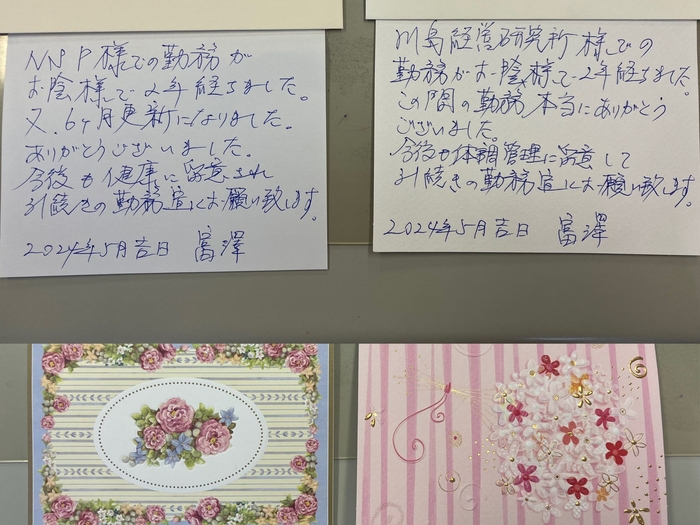 NNP様での勤務が
お陰様で2年経ちました。
又、6ヶ月更新になりました。
ありがとうございました。
今後も健康に留意され
引続きの勤務宜しくお願い致します。
2024年5月吉日 富澤
川島経営研究所様での
勤務がお陰様で2年経ちました。
この間の勤務本当にありがとう
ございました。
今後も体調管理に留意して
引続きの勤務宜しくお願い致します。
2024年5月吉日 富澤